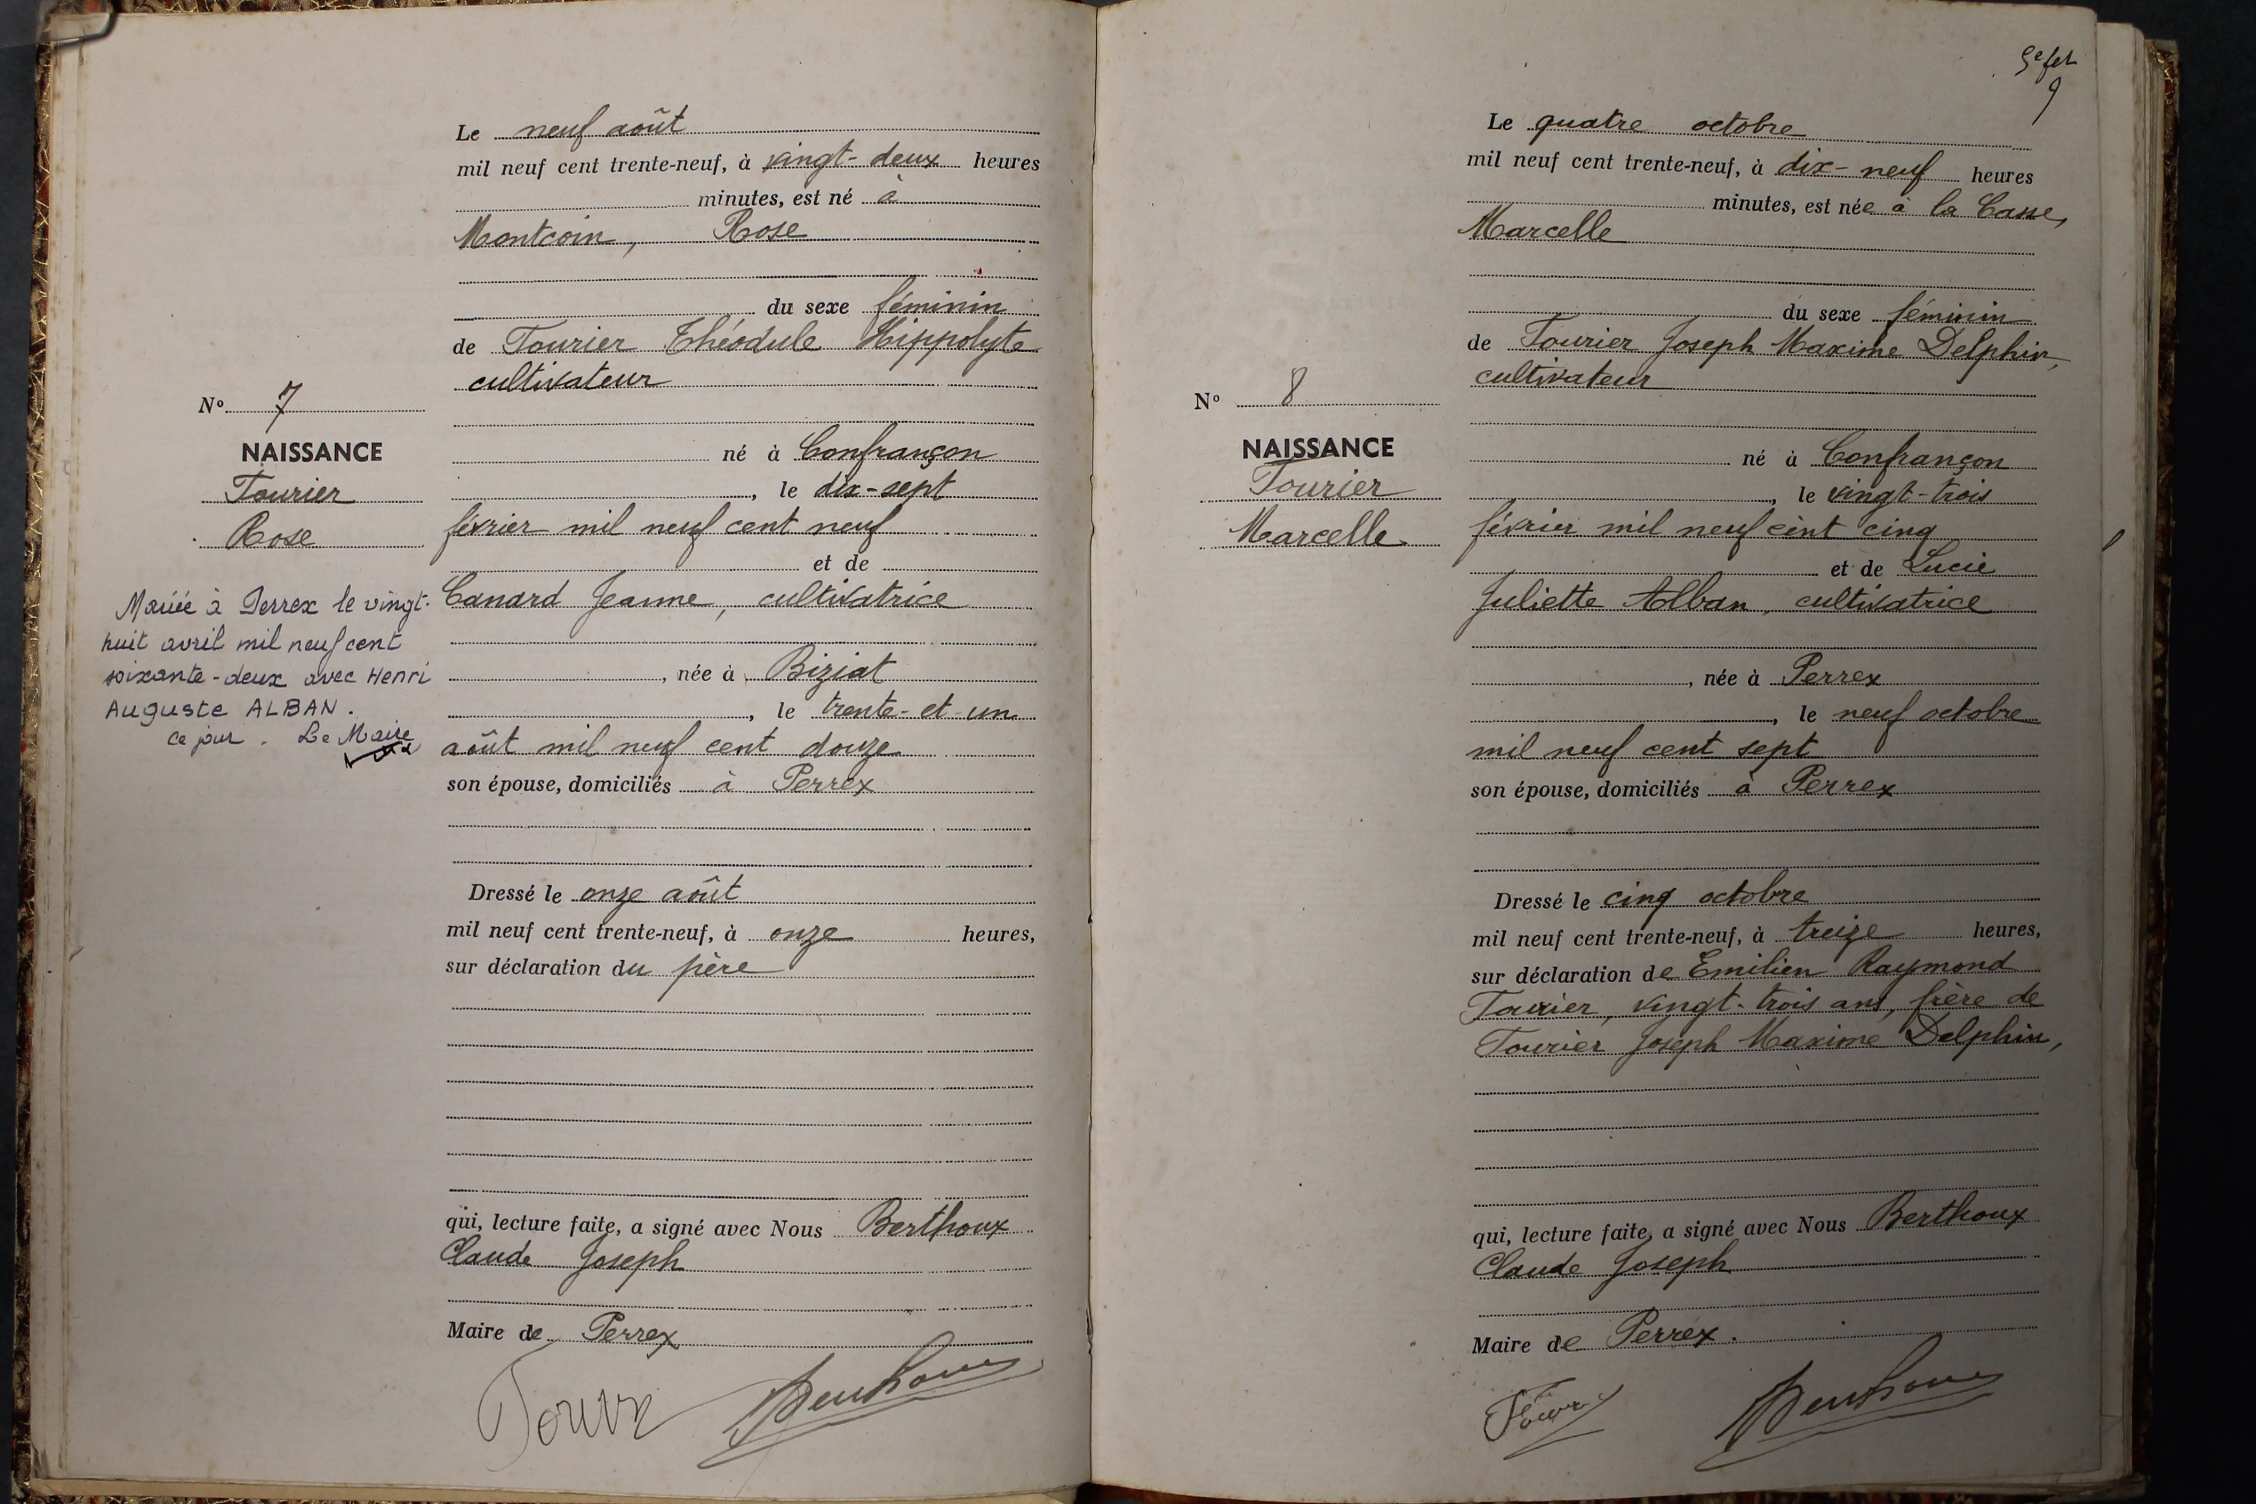 Le neuf août
mil neuf cent trente-neuf, à vingt-deux heures
minutes, est né à
Montcoin, Rose
du sexe féminin
de Fourier Théodule Hippolyte
cultivateur
né à Confrançon
, le dix-sept
février mil neuf cent neuf
et de
Canard Jeanne, cultivatrice
, née à Biziat
, le trente-et-un
août mil neuf cent douze
son épouse, domiciliés à Perrex
Dressé le onze août
mil neuf cent trente-neuf, à onze heures,
sur déclaration du père
qui, lecture faite, a signé avec Nous Berthoux
Claude Joseph
Maire de Perrex
N° 7
NAISSANCE
Fourier
Rose
Mariée à Perrex le vingt-
huit avril mil neuf cent
soixante-deux avec Henri
Auguste ALBAN.
Ce jour. Le Maire
5e fet
9
Le quatre octobre
mil neuf cent trente-neuf, à dix-neuf heures
minutes, est née à la Casse,
Marcelle
du sexe féminin
de Fourier Joseph Maxime Delphin,
cultivateur
né à Confrançon
, le vingt-trois
février mil neuf cent cinq
et de Lucie
Juliette Alban, cultivatrice
, née à Perrex
, le neuf octobre
mil neuf cent sept
son épouse, domiciliés à Perrex
Dressé le cinq octobre
mil neuf cent trente-neuf, à treize heures,
sur déclaration de Emilien Raymond
Fourier, vingt-trois ans, frère de
Fourier Joseph Maxime Delphin,
qui, lecture faite, a signé avec Nous Berthoux
Claude Joseph
Maire de Perrex.
N° 8
NAISSANCE
Fourier
Marcelle